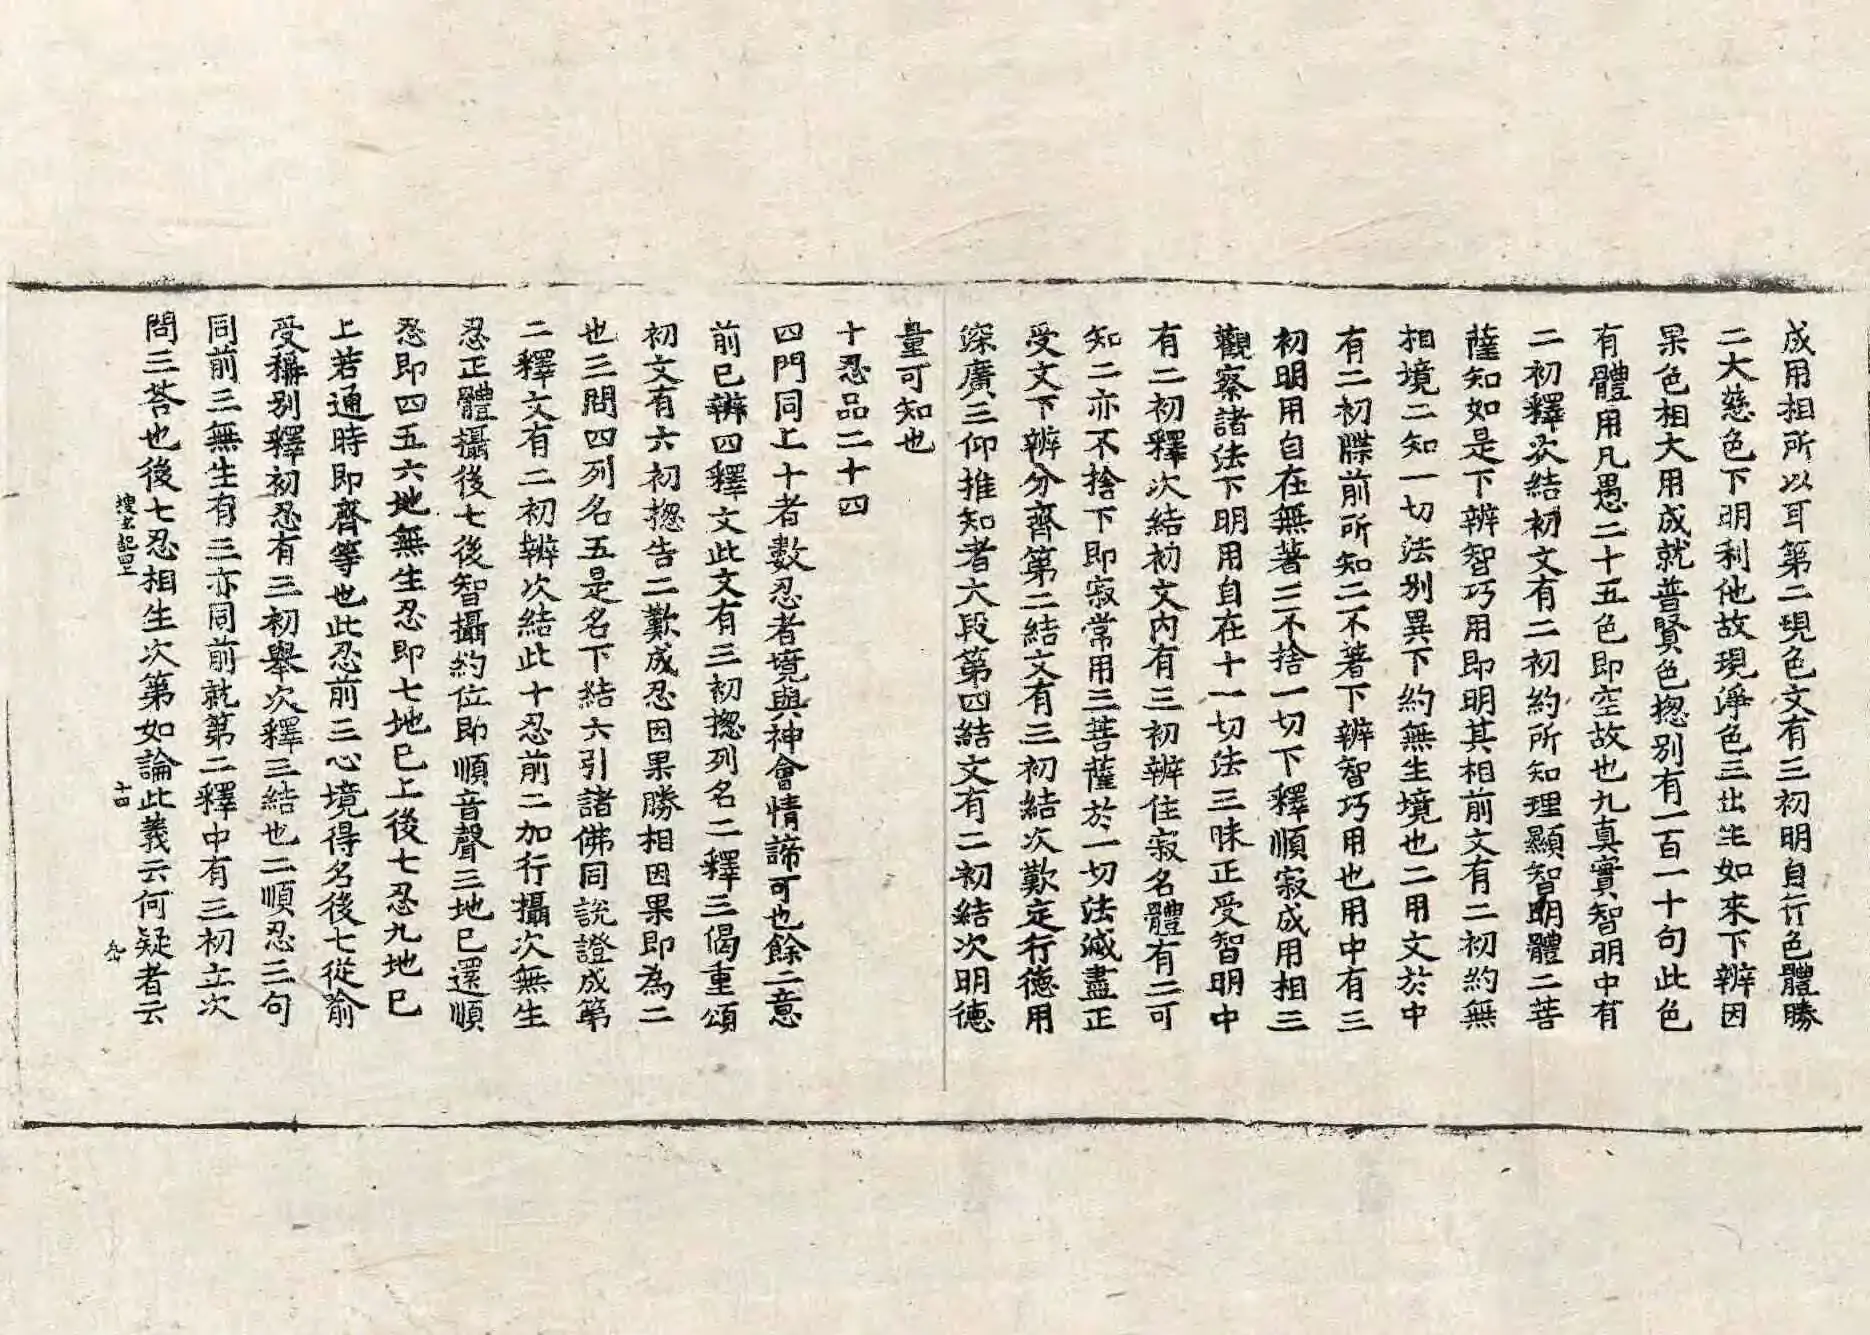 成用相所以耳第二現色文有三初明自行色體勝
二大慈色下明利他故現淨色三出生如來下辨因
果色相大用成就普賢色揔別有一百一十句此色
有體用凡愚二十五色即空故也九真實智明中有
二初釋次結初文有二初約所知理顯智明體二菩
薩知如是下辨智巧用即明其相前文有二初約無
相境二知一切法別異下約無生境也二用文於中
有二初牒前所知二不著下辨智巧用也用中有三
初明用自在無著二不捨一切下釋順寂成用相三
觀察諸法下明用自在十一切法三昧正受智明中
有二初釋次結初文內有三初辨住寂名體有二可
知二亦不捨下即寂常用三菩薩於一切法滅盡正
受文下辨分齊第二結文有三初結次歎定行德用
深廣三仰推知者大段第四結文有二初結次明德
量可知也
十忍品二十四
四門同上十者數忍者境與神會情諦可也餘二意
前已辨四釋文此文有三初揔列名二釋三偈重頌
初文有六初揔告二歎成忍因果勝相因果即為二
也三問四列名五是名下結六引諸佛同說證成第
二釋文有二初辨次結此十忍前二加行攝次無生
忍正體攝後七後智攝約位即順音聲三地已還順
忍即四五六地無生忍即七地已上後七忍九地已
上若通時即齊等也此忍前三心境得名後七從喻
受稱別釋初忍有三初舉次釋三結也二順忍三句
同前三無生有三亦同前就第二釋中有三初立次
問三荅也後七忍相生次第如論此義云何疑者云
搜玄記四 十四